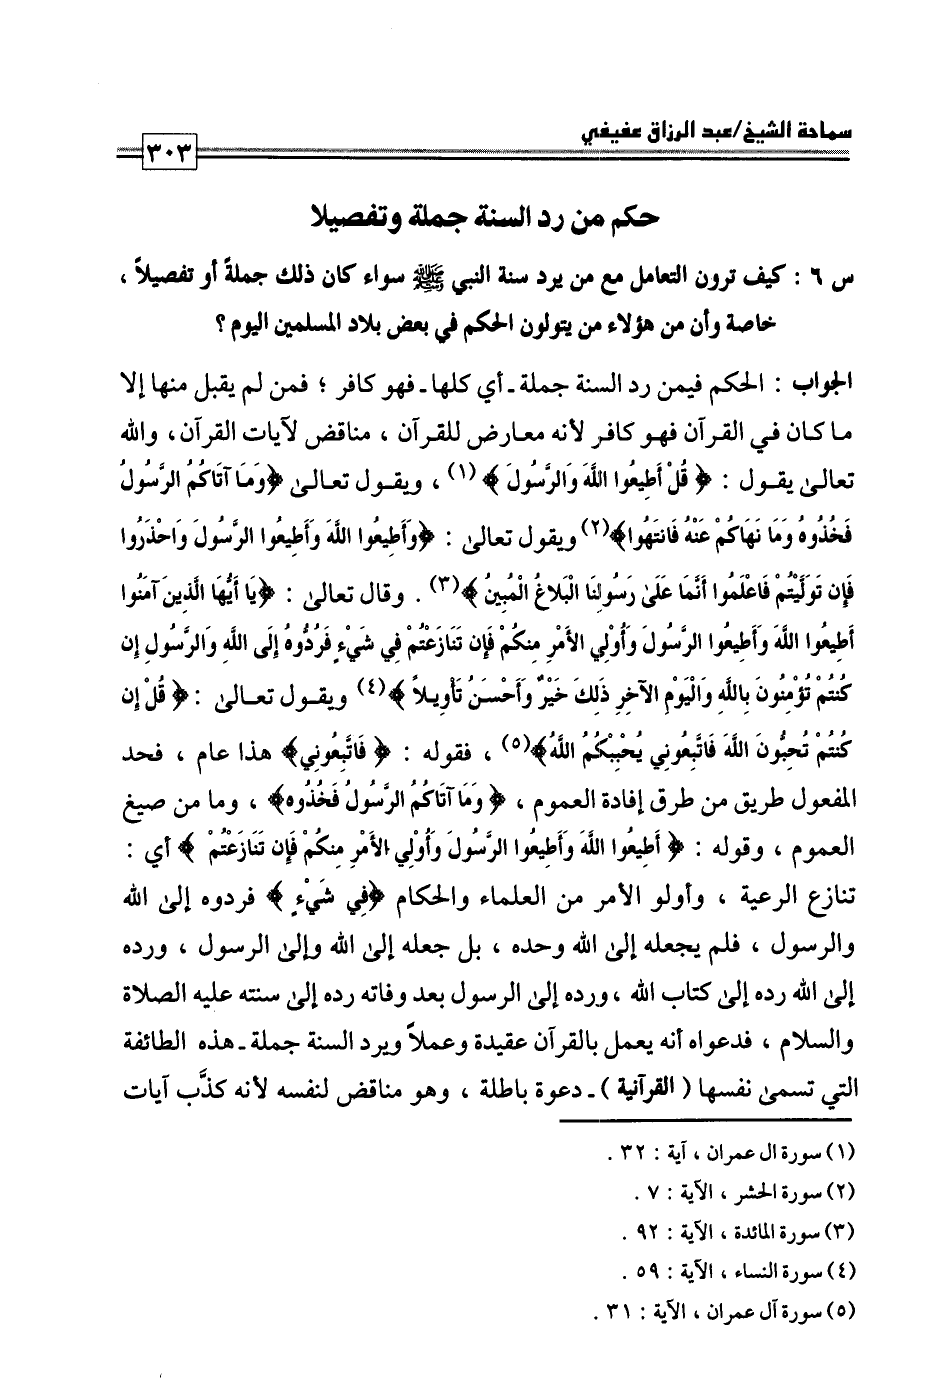 سماحة الشيخ/عبد الرزاق عفيفي
٣٠٣
حكم من رد السنة جملة وتفصيلا
س ٦ : كيف ترون التعامل مع من يرد سنة النبي ﷺ سواء كان ذلك جملةً أو تفصيلاً ،
خاصة وأن من هؤلاء من يتولون الحكم في بعض بلاد المسلمين اليوم ؟
الجواب : الحكم فيمن رد السنة جملة ـ أي كلها ـ فهو كافر ؛ فمن لم يقبل منها إلا
ما كان في القرآن فهو كافر لأنه معارض للقرآن ، مناقض لآيات القرآن، والله
تعالىٰ يقول : ﴿ قُلْ أَطِيعُوا اللَّهَ وَالرَّسُولَ ﴾ (١) ، ويقول تعالىٰ ﴿وَمَا آتَاكُمُ الرَّسُولُ
فَخُذُوهُ وَمَا نَهَاكُمْ عَنْهُ فَانتَهُوا﴾(٢) ويقول تعالىٰ : ﴿وَأَطِيعُوا اللَّهَ وَأَطِيعُوا الرَّسُولَ وَاحْذَرُوا
فَإِن تَوَلَّيْتُمْ فَاعْلَمُوا أَنَّمَا عَلَىٰ رَسُولِنَا الْبَلاغُ الْمُبِينُ ﴾(٣) . وقال تعالىٰ : ﴿يَا أَيُّهَا الَّذِينَ آمَنُوا
أَطِيعُوا اللَّهَ وَأَطِيعُوا الرَّسُولَ وَأُوْلِي الأَمْرِ مِنكُمْ فَإِن تَنَازَعْتُمْ فِي شَيْءٍ فَرُدُّوهُ إِلَى اللَّهِ وَالرَّسُولِ إِن
كُنتُمْ تُؤْمِنُونَ بِاللَّهِ وَالْيَوْمِ الآخِرِ ذَلِكَ خَيْرٌ وَأَحْسَنُ تَأْوِيلاً ﴾(٤) ويقول تعالىٰ : ﴿ قُلْ إِن
كُنتُمْ تُحِبُّونَ اللَّهَ فَاتَّبِعُونِي يُحْبِبْكُمُ اللَّهُ﴾(٥) ، فقوله : ﴿ فَاتَّبِعُونِي﴾ هذا عام ، فحد
المفعول طريق من طرق إفادة العموم ، ﴿ وَمَا آتَاكُمُ الرَّسُولُ فَخُذُوهُ﴾ ، وما من صيغ
العموم ، وقوله : ﴿ أَطِيعُوا اللَّهَ وَأَطِيعُوا الرَّسُولَ وَأُوْلِي الأَمْرِ مِنكُمْ فَإِن تَنَازَعْتُمْ ﴾ أي :
تنازع الرعية ، وأولو الأمر من العلماء والحكام ﴿فِي شَيْءٍ ﴾ فردوه إلىٰ الله
والرسول ، فلم يجعله إلىٰ الله وحده ، بل جعله إلىٰ الله وإلىٰ الرسول ، ورده
إلىٰ الله رده إلىٰ كتاب الله ، ورده إلىٰ الرسول بعد وفاته رده إلىٰ سنته عليه الصلاة
والسلام ، فدعواه أنه يعمل بالقرآن عقيدة وعملاً ويرد السنة جملة ـ هذه الطائفة
التي تسمىٰ نفسها ( القرآنية ) ـ دعوة باطلة ، وهو مناقض لنفسه لأنه كذَّب آيات
(١) سورة ال عمران ، آية : ٣٢ .
(٢) سورة الحشر ، الآية : ٧ .
(٣) سورة المائدة ، الآية : ٩٢ .
(٤) سورة النساء ، الآية : ٥٩ .
(٥) سورة آل عمران ، الآية : ٣١ .